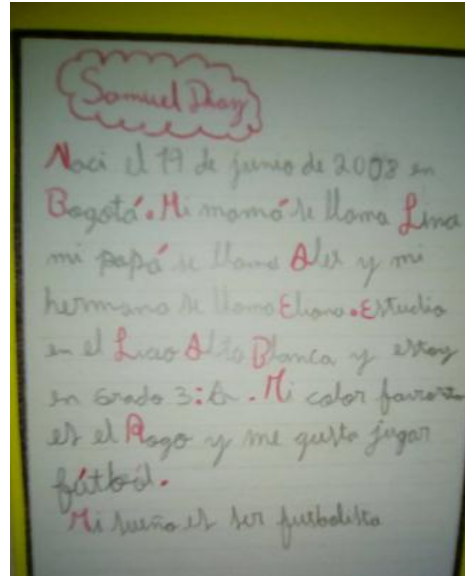 Samuel Diaz
Naci el 19 de junio de 2008 en
Bogotá. Mi mamá se llama Lina
mi papá se llama Alex y mi
hermana se llama Eliana. Estudio
en el Liceo Alta Blanca y estoy
en Grado 3:A. Mi color favorito
es el Rogo y me gusta jugar
fútból.
Mi sueño es ser futbolista